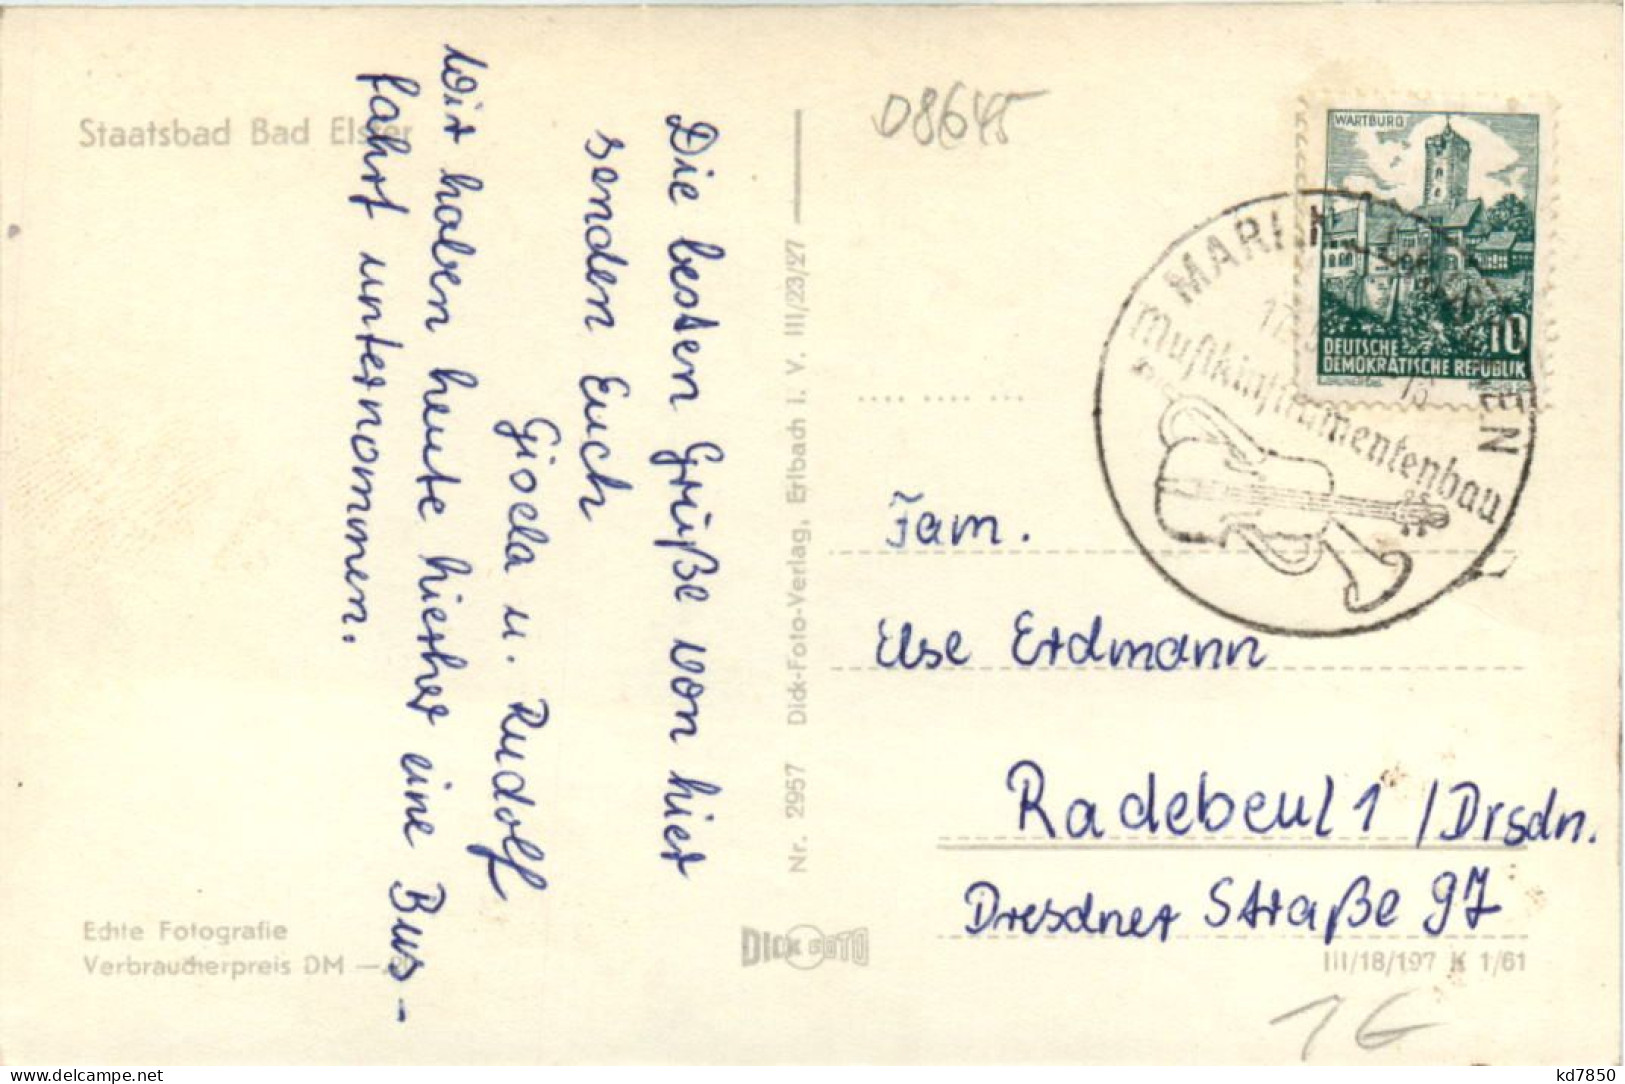 Staatsbad Bad Elster
Die besten Grüße von hier
senden Euch
Gisela u. Rudolf
Wir haben heute hierher eine Bus-
fahrt unternommen.
Echte Fotografie
Verbraucherpreis DM
Nr. 2957 Dick-Foto-Verlag, Erlbach i. V. III/23/27
DICK FOTO
08645
WARTBURG
10
DEUTSCHE
DEMOKRATISCHE REPUBLIK
Musikinstrumentenbau
Fam.
Else Erdmann
Radebeul 1 /Drsdn.
Dresdner Straße 97
III/18/197 K 1/61
kd7850